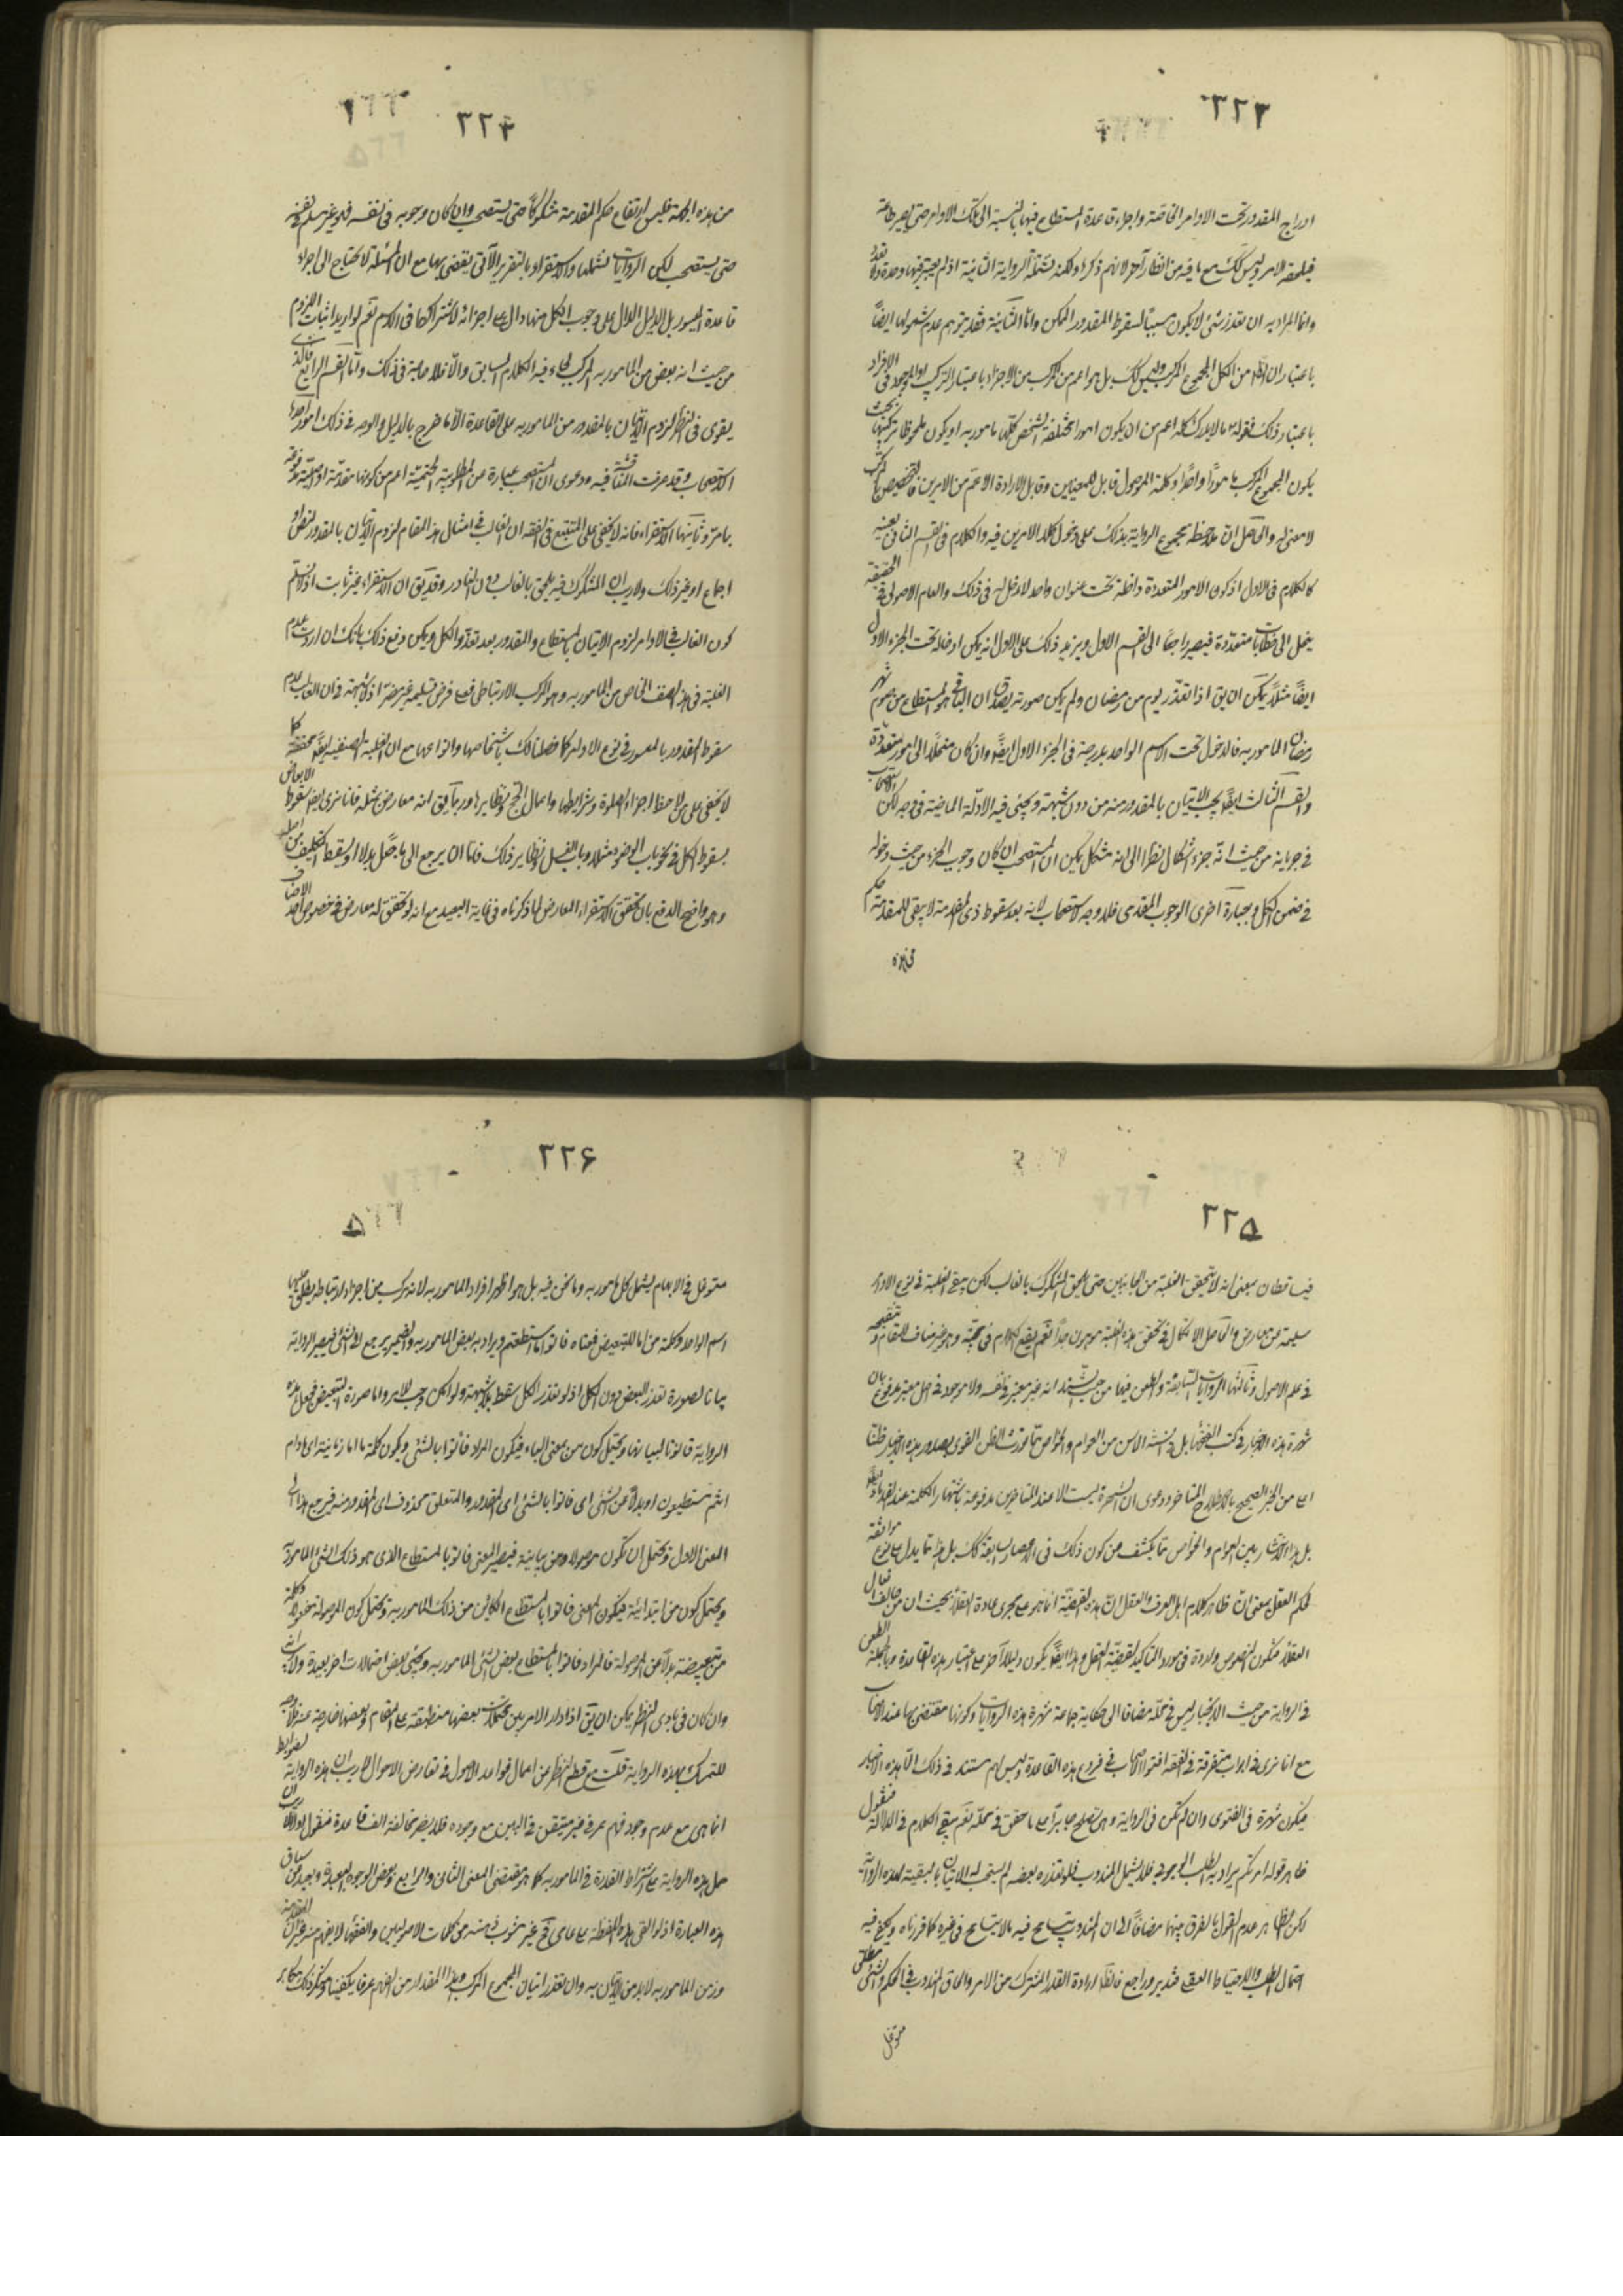 ٢٢٣
ادراج المقدور تحت الاوامر الخاصة واجراء قاعدة المستطاع فيها بالنسبة الى تلك الاوامر حتى يصير طاعة
فيلحقه الامر وليس كك مع ما فيه من انظار آخر لانهم ذكروا ولكنه تشمله الرواية الثانية اذ لم يعتبر فيها وحدة ولا تعدد
وانما المراد به ان تعذر شئ لا يكون سببا لسقوط المقدور الممكن واما الثالثة فقد يتوهم عدم شمولها ايضا
باعتبار ان الظ من الكل المجموع المركب وليس كك بل هو اعم من المركب من الاجزاء باعتبار التركيب او الموجود في الافراد
باعتبار ذلك فقوله ما لا يدرك كله اعم من ان يكون امورا مختلفة الشخص كلها مامور به او يكون ملحوظا تركبها بحيث
يكون المجموع المركب مامورا واحدا وكلمة الموصول قابل للمعنيين وقابل لارادة الاعم من الامرين فالتخصيص بالمركب
لا معنى له والحاصل ان ملاحظة مجموع الرواية بذلك على دخول كلا الامرين فيه والكلام في القسم الثاني بعينه
كالكلام في الاول اذ كون الامور المتعددة داخلة تحت عنوان واحد لا دخل له في ذلك والعام الاصولي في الحقيقة
ينحل الى خطابات متعددة فيصير راجعا الى القسم الاول ويزيد ذلك على الاول انه يمكن ادخاله تحت الجزء الاول
ايضا مثلا يمكن ان يق اذا تعذر يوم من رمضان ولم يكن صورته يصدق ان الباقي هو المستطاع من صوم شهر
رمضان المامور به فالدخول تحت الاسم الواحد يدرجه في الجزء الاول ايضا وان كان منحلا الى امور متعددة
والقسم الثالث ايضا يجب الاتيان بالمقدور منه من دون شبهة ويجئ فيه الادلة الماضية في وجه لكن الاستصحاب
في جريانه من حيث انه جزء اشكال نظرا الى انه مشكل يمكن ان المستصحب ان كان وجوب الجزء من حيث دخوله
في ضمن الكل وبعبارة اخرى الوجوب المقدمي فلا وجه لاستصحاب لانه بعد سقوط ذي المقدمة لا يبقى للمقدمة حكم
من هذه
٢٢٤
من هذه الجهة فليس ارتفاع حكم المقدمة مشكوكا حتى يستصحب وان كان وجوبه في نفسه فهو غير مسلم
حتى يستصحب لكن الروايات تشملها والاستقراء بالتقرير الآتي يقضي بها مع ان المسئلة لا تحتاج الى اجراء
قاعدة الميسور بل الدليل الدال على وجوب الكل منها دال على اجزائه لاشتراكها في الاسم نعم لو اريد اثبات اللزوم
من حيث انه بعض من المامور به المركب لجاء فيه الكلام السابق والا فلا حاجة في ذلك واما القسم الرابع فالذي
يقوى في النظر لزوم الاتيان بالمقدور من المامور به على القاعدة الا ما خرج بالدليل والوجه في ذلك امور احدها
الاستصحاب وقد عرفت المناقشة فيه ودعوى ان المستصحب عبارة عن المطلوبية الحتمية اعم من كونها مقدمية او اصلية مدفوعة
بما مر وثانيها الاستقراء فانه لا يخفى على المتتبع في الفقه ان الغالب في امثال هذا المقام لزوم الاتيان بالمقدور لنص او
اجماع او غير ذلك ولا ريب ان المشكوك فيه يلحق بالغالب دون النادر وقد يق ان الاستقراء غير ثابت اذ لا نسلم
كون الغالب في الاوامر لزوم الاتيان بالمستطاع والمقدور بعد تعذر الكل ويمكن دفع ذلك بانك ان اردت عدم
الغلبة في هذا الصنف الخاص من المامور به وهو المركب الارتباطي فعلى فرض تسليمه غير مضر اذ لا شبهة في ان الغالب عدم
سقوط المقدور بالمعسور في نوع الاوامر كما فصلنا لك باشخاصها وانواعها مع ان الغلبة الصنفية ايضا محققة كما
لا يخفى على من لاحظ اجزاء الصلوة وشرايطها واعمال الحج ونظايرها وربما يق انه معارض بمثله فانا نرى ايضا سقوط الابعاض
بسقوط الكل في نحو باب الوضوء مثلا وباب الغسل ونظاير ذلك فاما ان يرجع الى ما جعل بدلا او يسقط التكليف من اصله
وهو واضح الدفع بان تحقق الاستقراء المعارض لما ذكرناه في غاية البعد مع انه لو تحقق له معارض في خصوص احد الاصناف
٢٢٥
فيتساقطان بمعنى انه لا تتحقق الغلبة من الجانبين حتى يلحق المشكوك بالغالب لكن يبقى الغلبة في نوع الاوامر
سليمة عن معارض والحاصل الاشكال في تحقق هذه الغلبة موهون جدا نعم يقع الكلام في حجيته وهو غير مناف للمقام وتنقيحه
في علم الاصول وثالثها الروايات السابقة والطعن فيها من حيث السند انه غير معتبر في نفسه ولا موجود في اصل معتبر مدفوع بان
شهرة هذه الاخبار في كتب الفقهاء بل في السنة الناس من العوام والخواص مما تورث الظن القوي بصدور هذه الاخبار ظنا
اعلى من الخبر الصحيح بالاصطلاح المتاخر ودعوى ان الشهرة ليست الا عند المتاخرين مدفوعة باشتهار الكلمة عند القدماء ايضا
بل هذا الاشتهار بين العوام والخواص مما يكشف عن كون ذلك في الاعصار السابقة كك بل هذا مما يدل على نوع موافقة
لحكم العقل بمعنى ان ظاهر كلام اهل العرف والعقل ان هذه القضية انما هو على مجرى عادة العقلاء بحيث ان من خالف
العقلاء فتكون النصوص واردة في مورد التاكيد لقضية العقل وهذا ايضا يكون دليلا آخر على اعتبار هذه القاعدة وبالجملة الطعن
في الرواية من حيث الاخبار ليس في محله مضافا الى حكاية جماعة شهرة هذه الروايات وكونها مقتضى بها عند الاصحاب
مع انا نرى في ابواب متفرقة في الفقه افتوا الاصحاب في فروع هذه القاعدة وليس لهم مستند في ذلك الا هذه الاخبار
فيكون شهرة في الفتوى وان لم تكن في الرواية وهي تصلح جابرا على ما حقق في محله نعم يبقى الكلام في الدلالة فنقول
ظاهر قوله امرتكم يراد به الطلب الوجوبي فلا يشمل المندوب فلو تعذر بعضه لم يستحب الاتيان بالبقية لهذه الرواية
لكن الظاهر عدم القول بالفرق بينهما مضافا الى ان المندوب يتسامح فيه ما لا يتسامح في غيره كما قررناه ويكفي فيه
احتمال الطلب والاحتياط العقلي فتدبر وراجع فالظ ارادة القدر المشترك من الامر والحاق المندوب في الحكم والشئ مطلق
متوغل
٢٢٦
متوغل في الابهام يشمل كل مامور به وما نحن فيه بل هو اظهر افراد المامور به لانه مركب من اجزاء لارتباط يطلق عليها
اسم الواحد وكلمة من اما للتبعيض فمعناه فاتوا ما استطعتم ويراد به بعض المامور به والضمير يرجع الى الشئ فيصير الرواية
بيانا لصورة تعذر البعض دون الكل اذ لو تعذر الكل سقط بلا شبهة ولو امكن وجب بلا ريب واما صورة التبعيض فجعل هذه
الرواية قانونا لبيانها ويحتمل كون من بمعنى الباء فيكون المراد فاتوا بالشئ ويكون كلمة ما اما زمانية اي ما دام
انتم تستطيعون او بدلا عن الشئ اي فاتوا بالشئ اي المقدور والمتعلق محذوف اي المقدور منه فيرجع هذا الى
المعنى الاول ويحتمل ان تكون موصولا ومن بيانية فيصير المعنى فاتوا بالمستطاع الذي هو ذلك الشئ المامور به
ويحتمل كون من ابتدائية فيكون المعنى فاتوا بالمستطاع الكائن من ذلك المامور به ويحتمل كون الموصولة وكلمة
من تبعيضية بدلا عن الموصولة فالمراد فاتوا بالمستطاع بعض الشئ المامور به ويجئ بعض احتمالات اخر بعيدة ولا
وان كان في بادي النظر يمكن ان يق اذا دار الامر بين محتملات بعضها منطبقة على المقام وبعضها خارجة عنه فلا وجه
للتمسك بهذه الرواية قلت مع قطع النظر عن اعمال قواعد الاصول في تعارض الاحوال لا ريب ان هذه الرواية
انما هي مع عدم وجود فهم عرفي متيقن في البين مع وجوده فلا يضر مخالفة الف قاعدة فنقول اولا لا ريب ان
حمل هذه الرواية على اشتراط القدرة في المامور به كما هو مقتضى المعنى الثاني والرابع وبعض الوجوه البعيدة وبعيد عن سياق
هذه العبارة اذ لو القى هذه اللفظة على عامي قح غير مشوب ذهنه من كلمات الاصوليين والفقهاء لا يفهم منه غير ان
وزمن المامور به لا بد من الاتيان به وان تعذر اتيان المجموع المركب وهذا المقدار من الفهم عرفا يكفينا ومنكر ذلك مكابر